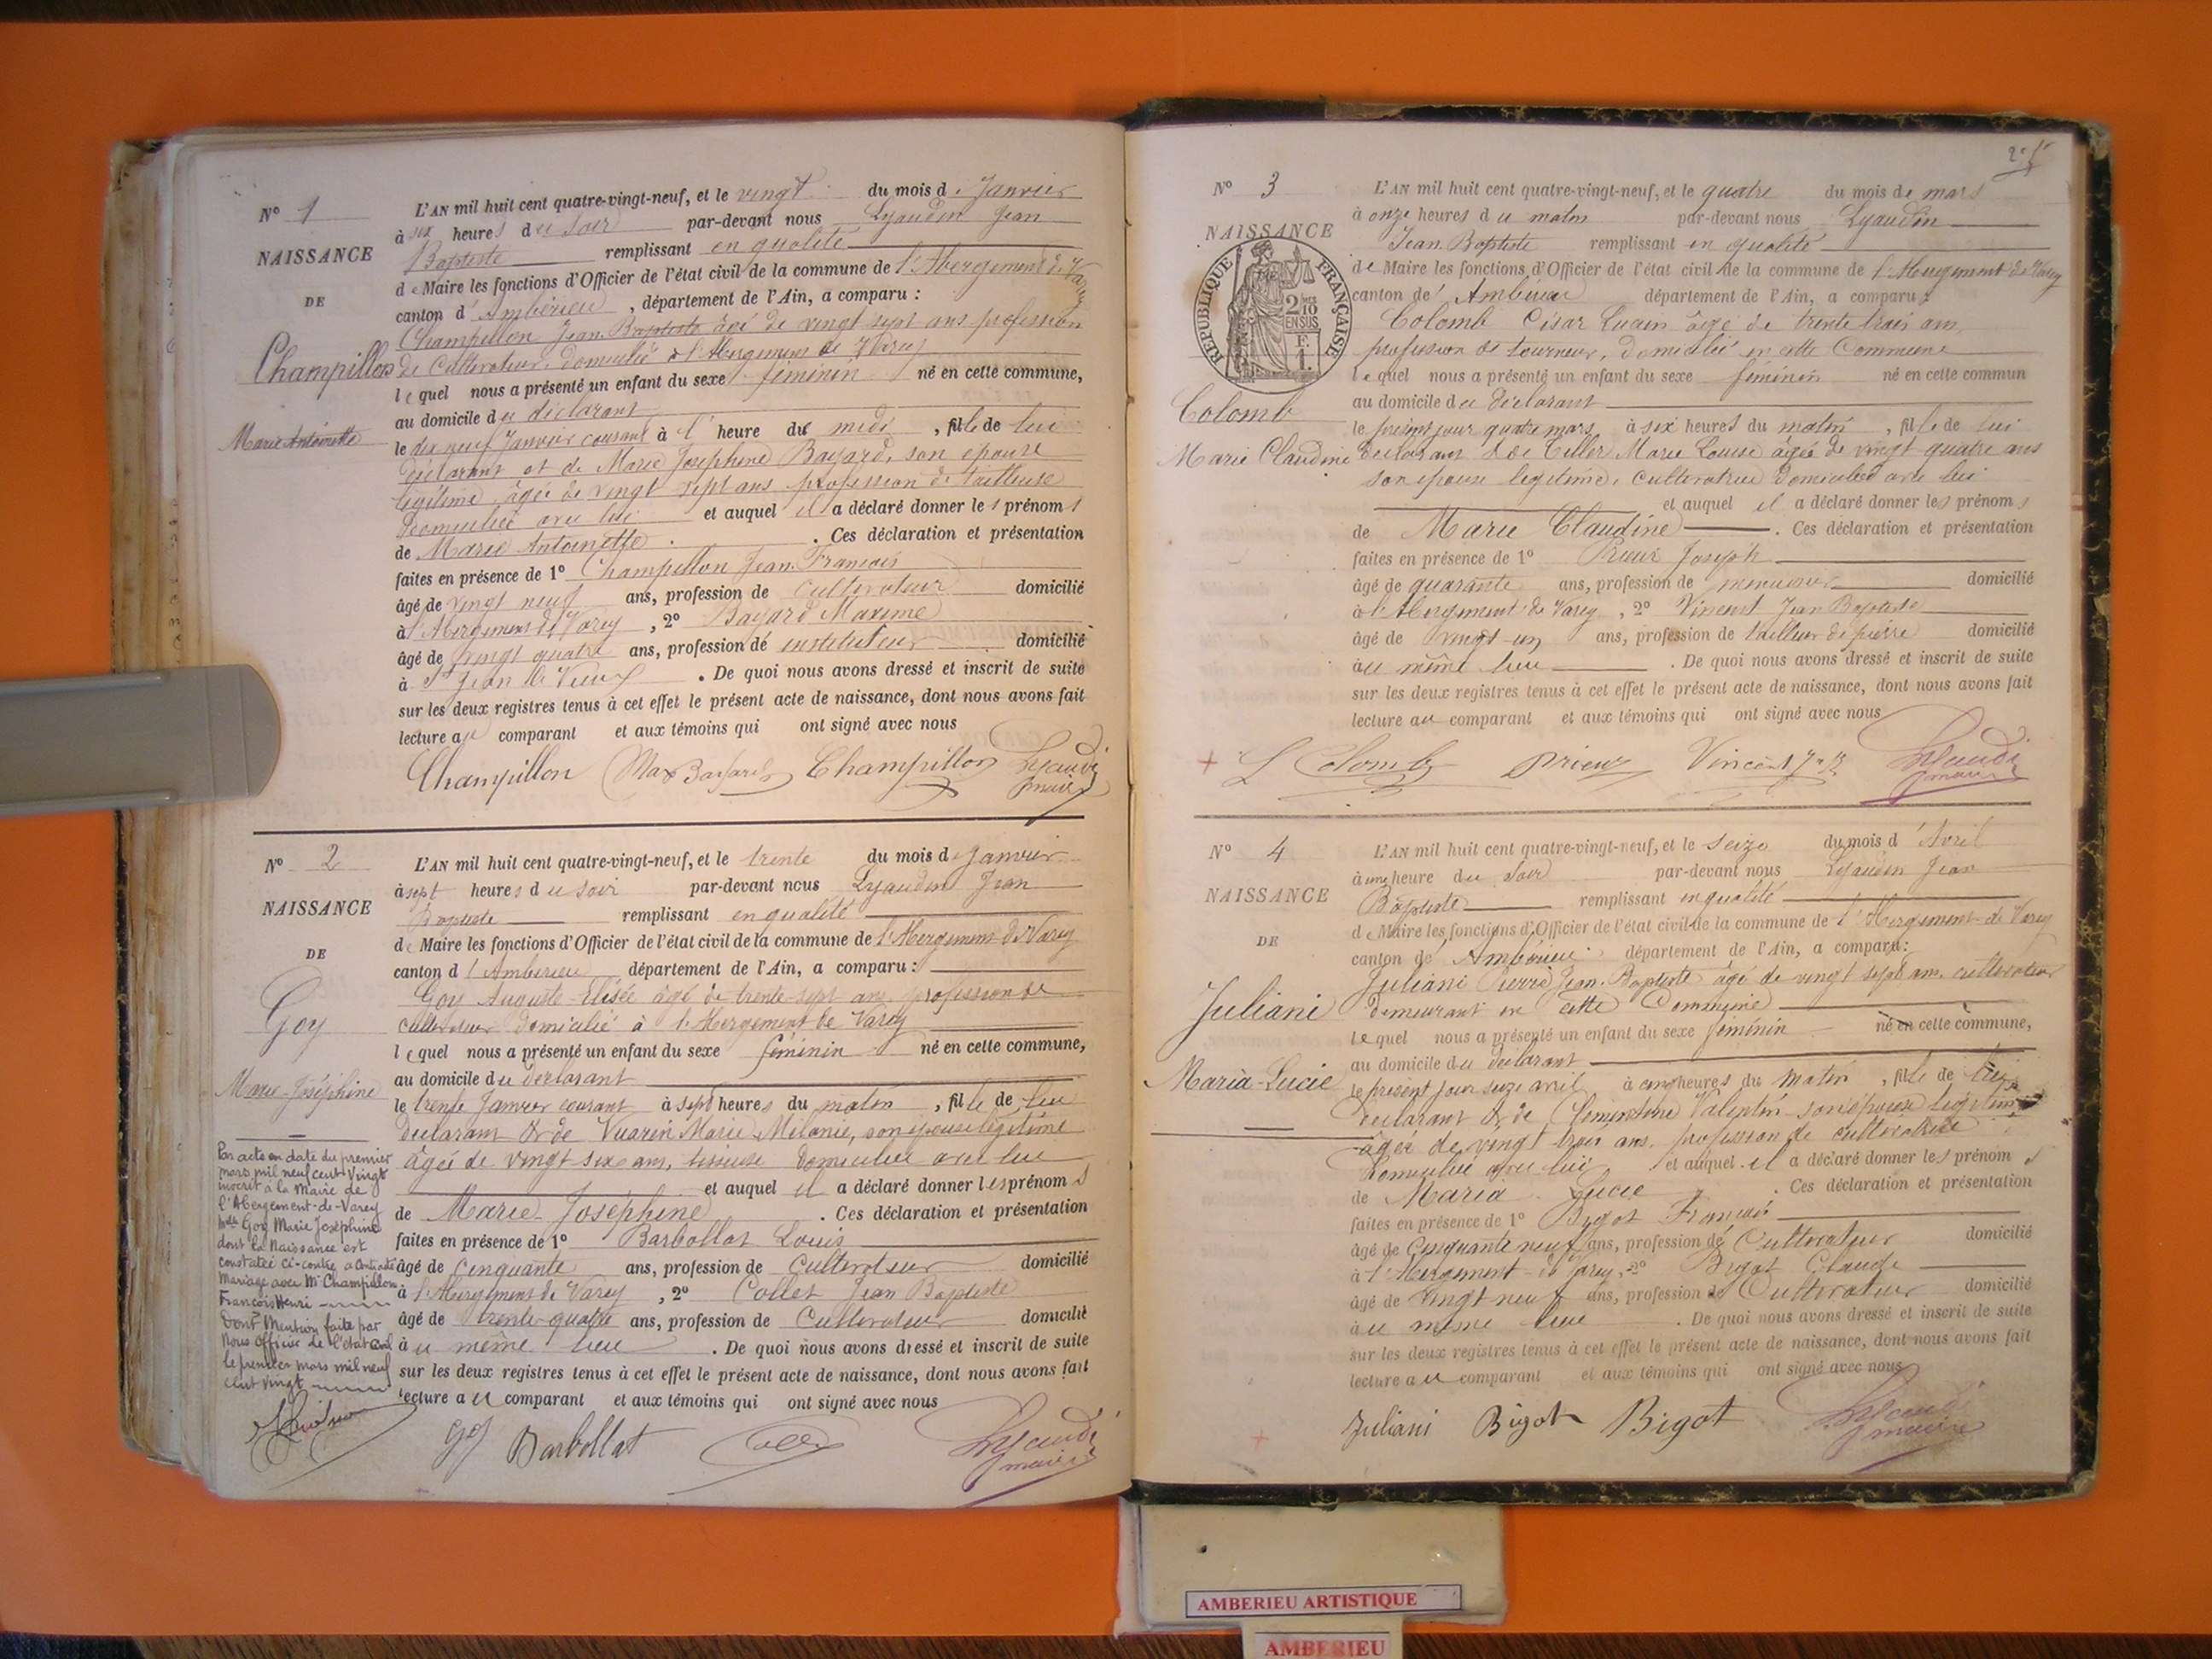 N° 1
NAISSANCE
DE
Champillon
Marie Antoinette
L'AN mil huit cent quatre-vingt-neuf, et le vingt du mois de Janvier
à six heures du soir par-devant nous Lyaudin Jean
Baptiste remplissant en qualité
de Maire les fonctions d'Officier de l'état civil de la commune de l'Abergement de Varey
canton d'Ambérieu, département de l'Ain, a comparu :
Champillon Jean Baptiste âgé de vingt sept ans profession
de Cultivateur, domicilié à l'Abergement de Varey
lequel nous a présenté un enfant du sexe féminin né en cette commune,
au domicile du déclarant
le dix neuf Janvier courant à l' heure du midi, fille de lui
déclarant et de Marie Joséphine Bayard, son épouse
légitime, âgée de vingt sept ans profession de tailleuse
domiciliée avec lui et auquel il a déclaré donner les prénoms
de Marie Antoinette. Ces déclaration et présentation
faites en présence de 1° Champillon Jean François
âgé de vingt neuf ans, profession de cultivateur domicilié
à l'Abergement de Varey, 2° Bayard Maxime
âgé de vingt quatre ans, profession de instituteur domicilié
à St Jean le Vieux. De quoi nous avons dressé et inscrit de suite
sur les deux registres tenus à cet effet le présent acte de naissance, dont nous avons fait
lecture au comparant et aux témoins qui ont signé avec nous
Champillon Max Bayard Champillon Lyaudin
maire
N° 2
NAISSANCE
DE
Goy
Marie-Joséphine
L'AN mil huit cent quatre-vingt-neuf, et le trente du mois de Janvier
à sept heures du soir par-devant nous Lyaudin Jean
Baptiste remplissant en qualité
de Maire les fonctions d'Officier de l'état civil de la commune de l'Abergement de Varey
canton d'Ambérieu département de l'Ain, a comparu :
Goy Auguste-Elisée âgé de trente-sept ans profession de
cultivateur domicilié à l'Abergement de Varey
lequel nous a présenté un enfant du sexe féminin né en cette commune,
au domicile du déclarant
le trente Janvier courant à sept heures du matin, fille de lui
déclarant & de Vuarin Marie Mélanie, son épouse légitime
âgée de vingt six ans, tisseuse domiciliée avec lui
et auquel il a déclaré donner les prénoms
de Marie-Joséphine. Ces déclaration et présentation
faites en présence de 1° Barbollat Louis
âgé de cinquante ans, profession de Cultivateur domicilié
à l'Abergement de Varey, 2° Collet Jean Baptiste
âgé de trente-quatre ans, profession de Cultivateur domicilié
au même lieu. De quoi nous avons dressé et inscrit de suite
sur les deux registres tenus à cet effet le présent acte de naissance, dont nous avons fait
lecture au comparant et aux témoins qui ont signé avec nous
Goy Barbollat Lyaudin
maire
Par acte en date du premier
mars mil neuf cent Vingt
inscrit à la Mairie de
l'Abergement-de-Varey
Melle Goy Marie Joséphine
dont la Naissance est
constatée ci-contre a contracté
Mariage avec Mr Champillon
François Henri
Dont Mention faite par
Nous Officier de l'état civil
le premier mars mil neuf
cent vingt
N° 3
NAISSANCE
REPUBLIQUE FRANÇAISE
2/10
EN SUS
F.
1.
Colomb
Marie Claudine
L'AN mil huit cent quatre-vingt-neuf, et le quatre du mois de mars
à onze heures du matin par-devant nous Lyaudin
Jean Baptiste remplissant en qualité
de Maire les fonctions d'Officier de l'état civil de la commune de l'Abergement de Varey
canton de Ambérieu département de l'Ain, a comparu :
Colomb César Lucien âgé de trente trois ans
profession de tourneur, domicilié en cette Commune
lequel nous a présenté un enfant du sexe féminin né en cette commun
au domicile du déclarant
le présent jour quatre mars à six heures du matin, fille de lui
déclarant & de Tiller Marie Louise âgée de vingt quatre ans
son épouse légitime, cultivatrice domiciliée avec lui
et auquel il a déclaré donner les prénoms
de Marie Claudine. Ces déclaration et présentation
faites en présence de 1° Prieur Joseph
âgé de quarante ans, profession de menuisier domicilié
à l'Abergement de Varey, 2° Vincent Jean Baptiste
âgé de vingt-un ans, profession de tailleur de pierre domicilié
au même lieu. De quoi nous avons dressé et inscrit de suite
sur les deux registres tenus à cet effet le présent acte de naissance, dont nous avons fait
lecture au comparant et aux témoins qui ont signé avec nous
L Colomb Prieur Vincent Lyaudin
maire
N° 4
NAISSANCE
DE
Juliani
Maria-Lucie
L'AN mil huit cent quatre-vingt-neuf, et le seize du mois d'Avril
à une heure du soir par-devant nous Lyaudin Jean
Baptiste remplissant en qualité
de Maire les fonctions d'Officier de l'état civil de la commune de l'Abergement de Varey
canton de Ambérieu département de l'Ain, a comparu :
Juliani Pierre Jean-Baptiste âgé de vingt sept ans, cultivateur
demeurant en cette Commune
lequel nous a présenté un enfant du sexe féminin né en cette commune,
au domicile du déclarant
le présent jour seize avril à cinq heures du matin, fille de lui
déclarant & de Valentin son épouse légitime
âgée de vingt trois ans, profession de cultivatrice
domiciliée avec lui et auquel il a déclaré donner les prénoms
de Maria Lucie. Ces déclaration et présentation
faites en présence de 1° Bigot François
âgé de Cinquante neuf ans, profession de Cultivateur domicilié
à l'Abergement de Varey, 2° Bigot Claude
âgé de Vingt neuf ans, profession de Cultivateur domicilié
au même lieu. De quoi nous avons dressé et inscrit de suite
sur les deux registres tenus à cet effet le présent acte de naissance, dont nous avons fait
lecture au comparant et aux témoins qui ont signé avec nous
Juliani Bigot Bigot Lyaudin
maire
AMBERIEU ARTISTIQUE
AMBERIEU